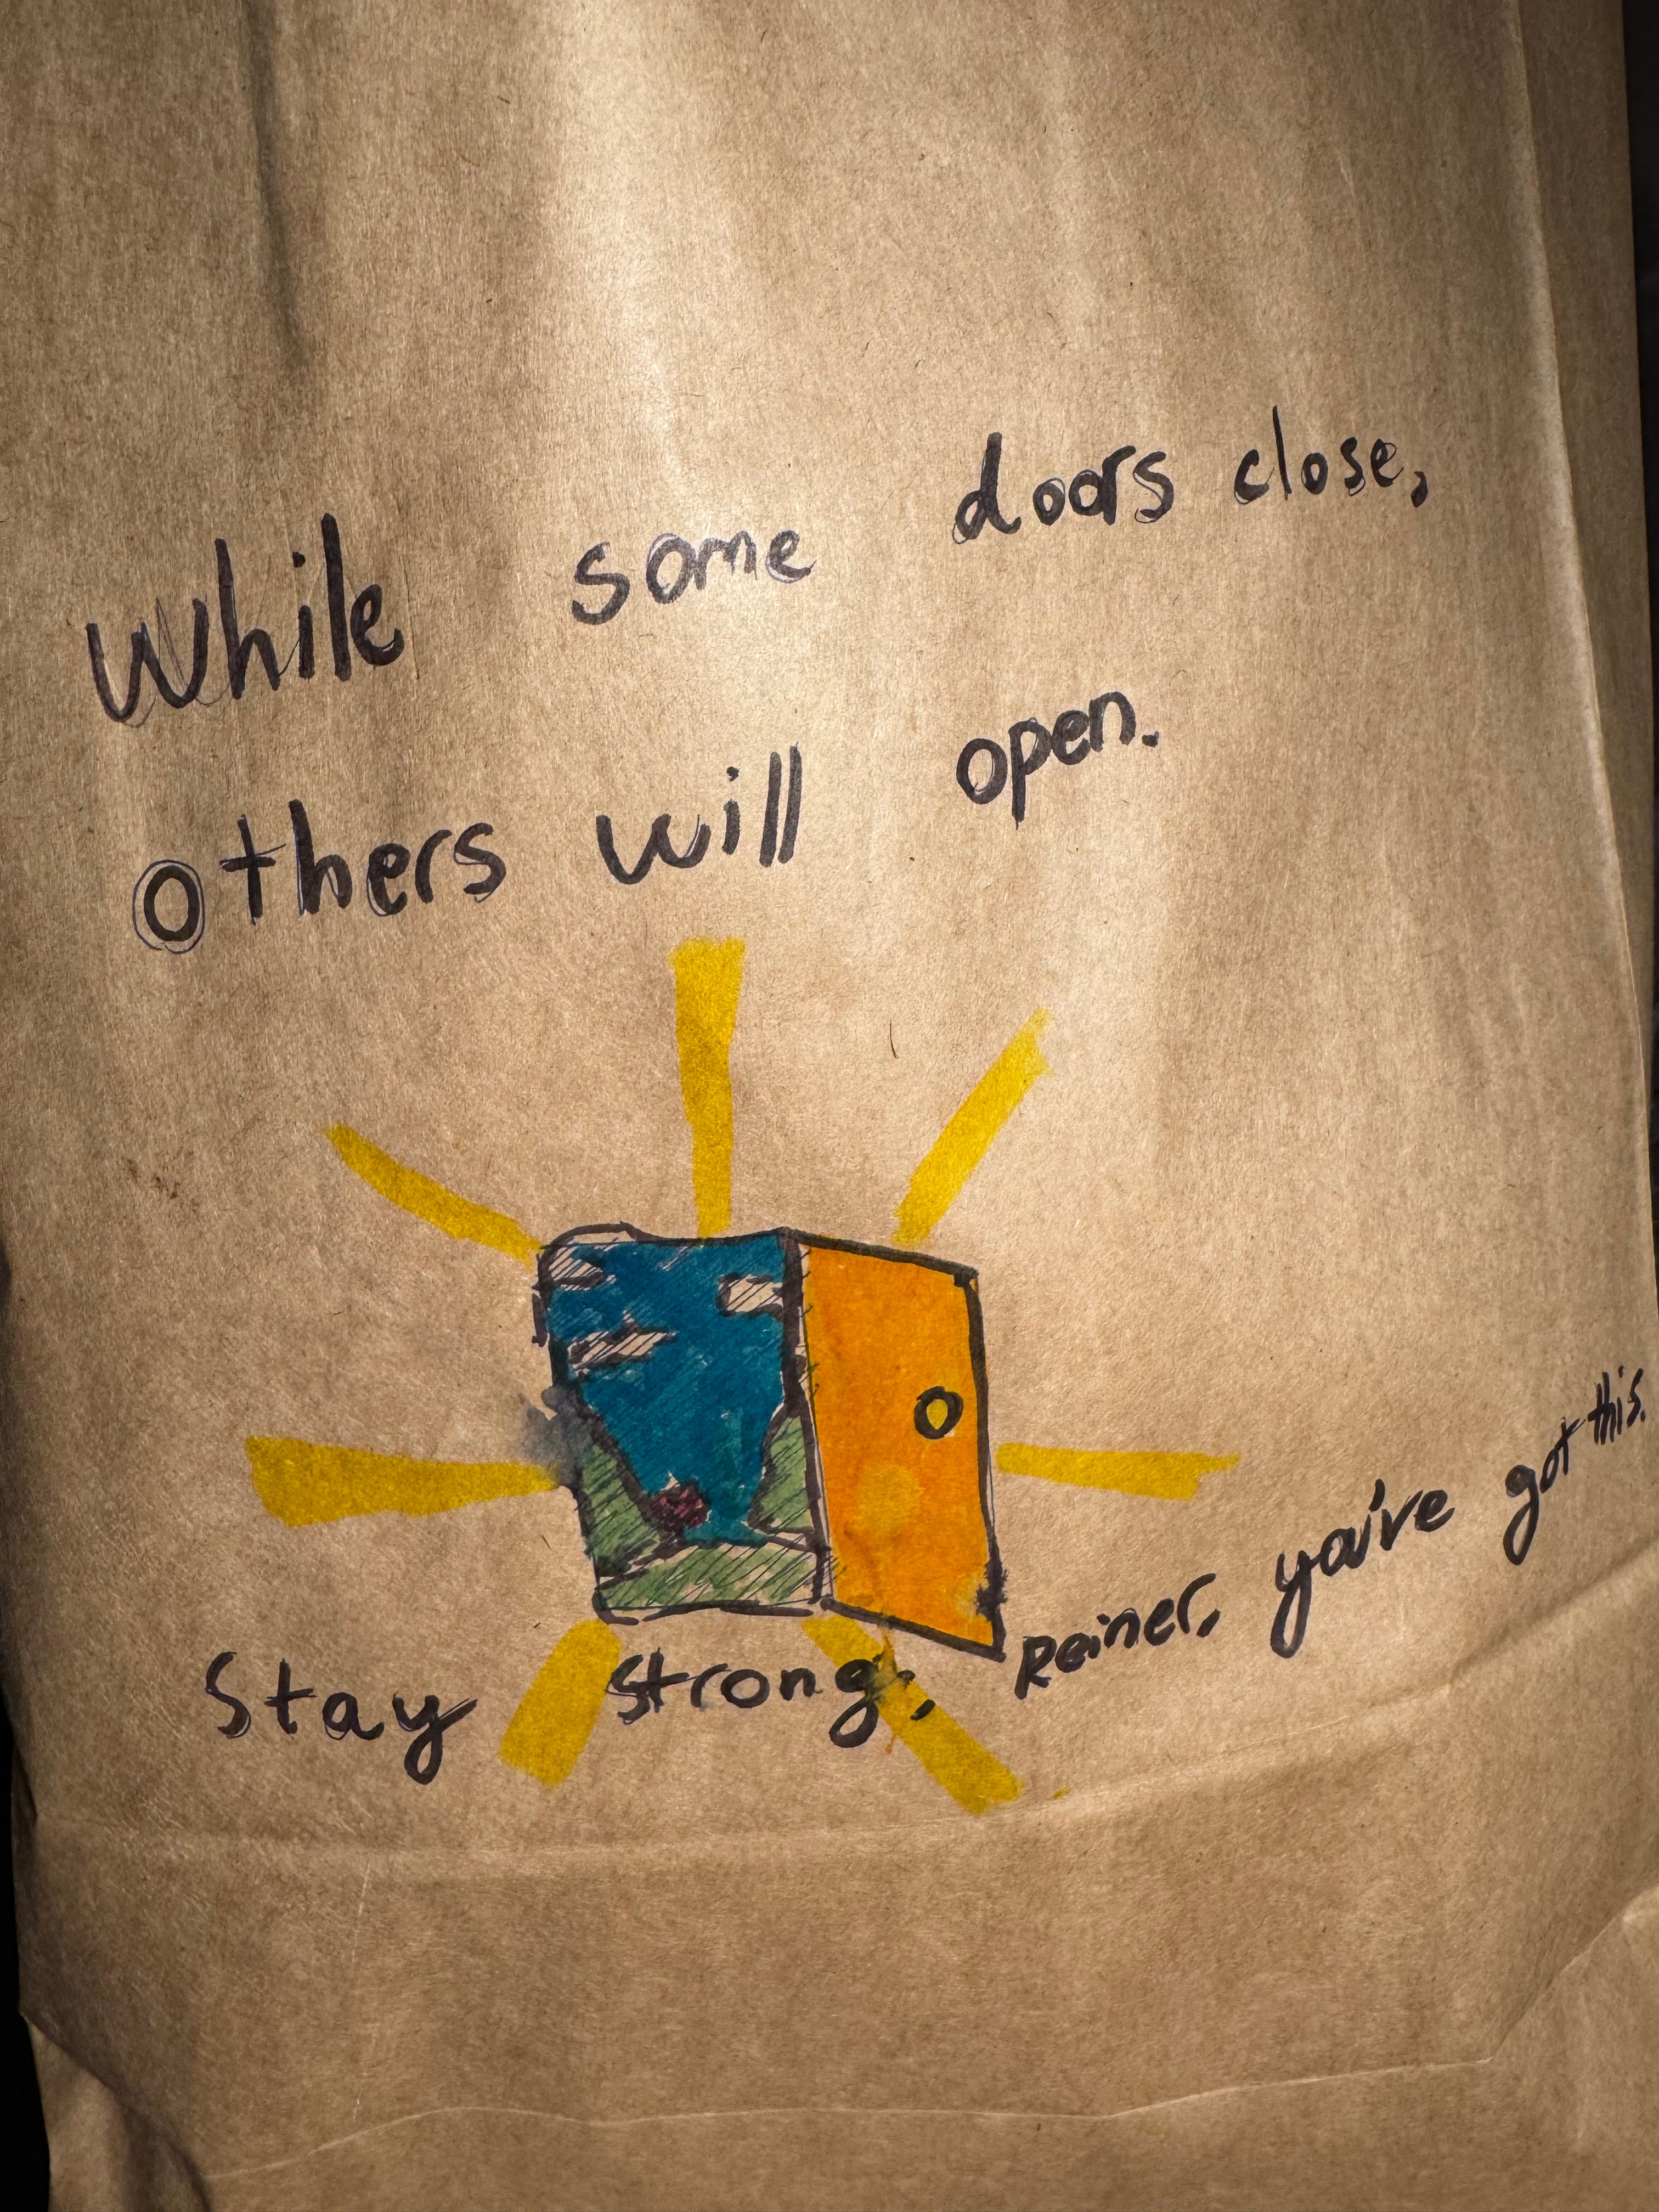 While some doors close,
others will open.
Stay strong, Reiner, you've got this.